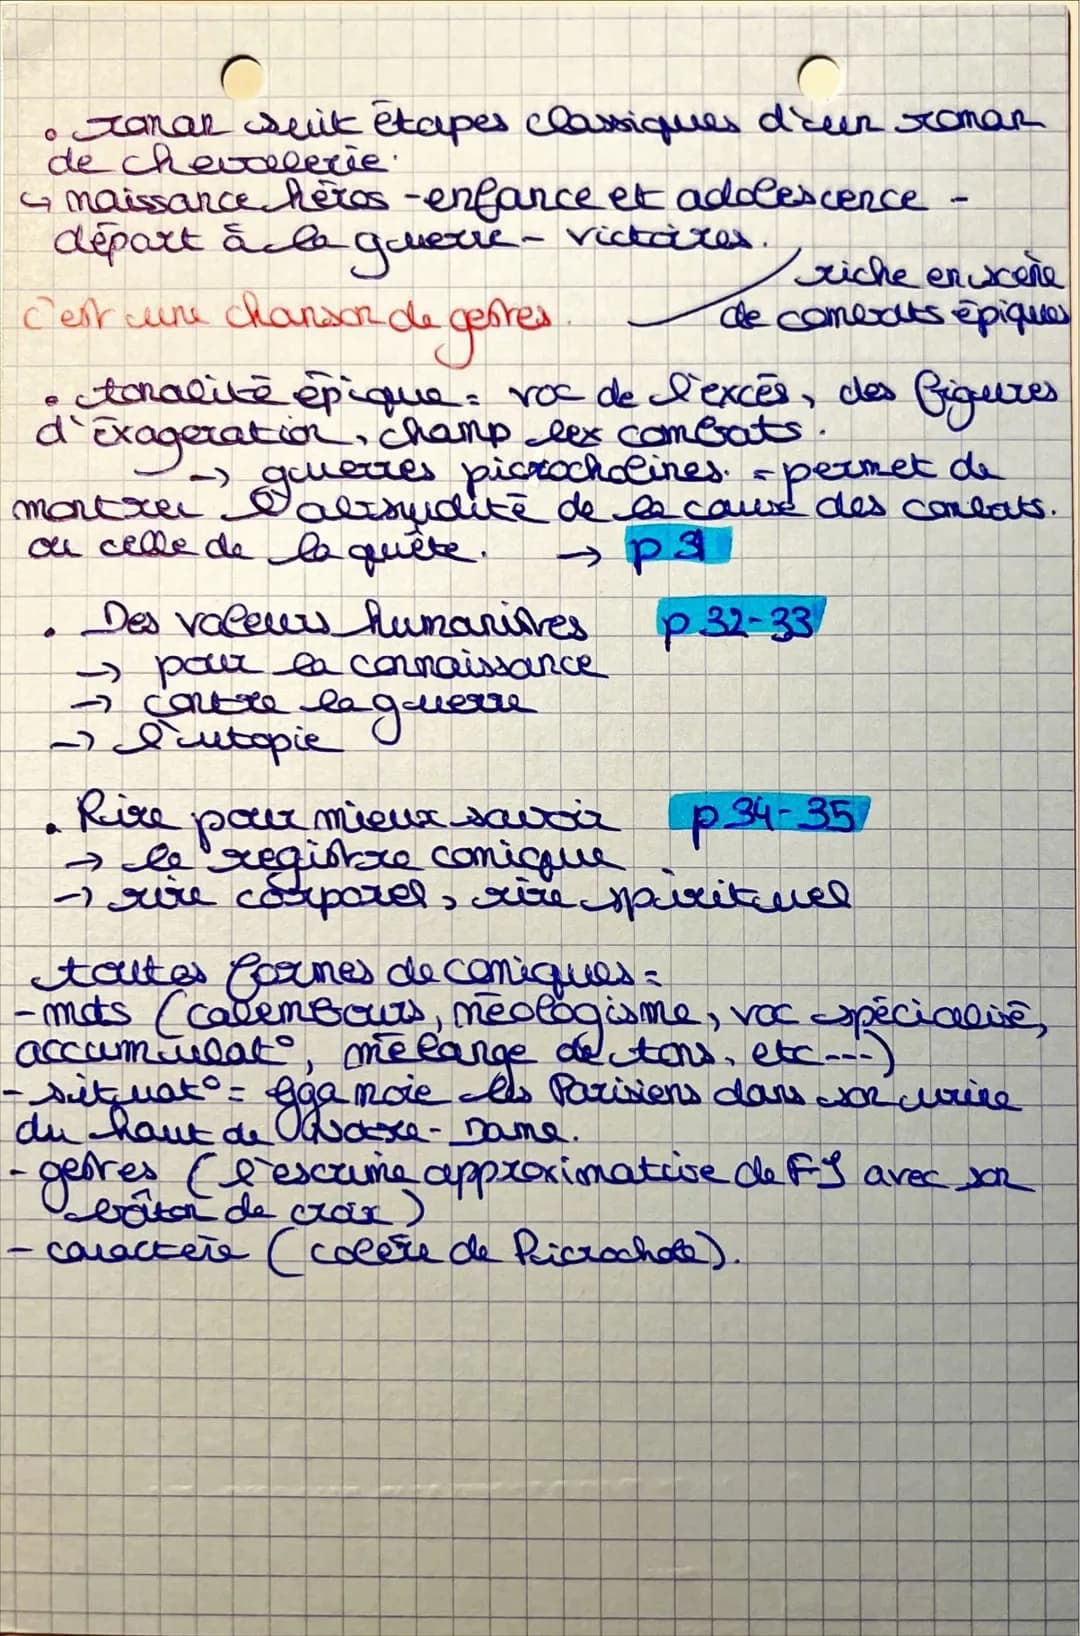 • roman suit étapes classiques d'un roman
de chevalerie.
↳ naissance héros - enfance et adolescence -
départ à la guerre - victoires.
riche en scène
c'est une chanson de gestes.
de combats épiques
• tonalité épique = voc de l'excès, des figures
d'éxageration, champ lex combats.
-> guerres picrocholines. = permet de
montrer l'absurdité de la cause des combats.
ou celle de la quête. -> p 31
• Des valeurs humanistes p 32-33
-> pour la connaissance
-> contre la guerre
-> l'utopie
• Rire pour mieux savoir p 34-35
-> le registre comique
-> rire corporel, rire spirituel
toutes formes de comiques =
- mots (calembours, néologisme, voc spécialisé,
accumulat°, mélange de tons, etc---)
- situat° = Gga noie les Parisiens dans son urine
du haut de Notre-Dame.
- gestres (l'escrime approximative de FJ avec son
bâton de croix)
- caractère (colère de Picrochole).